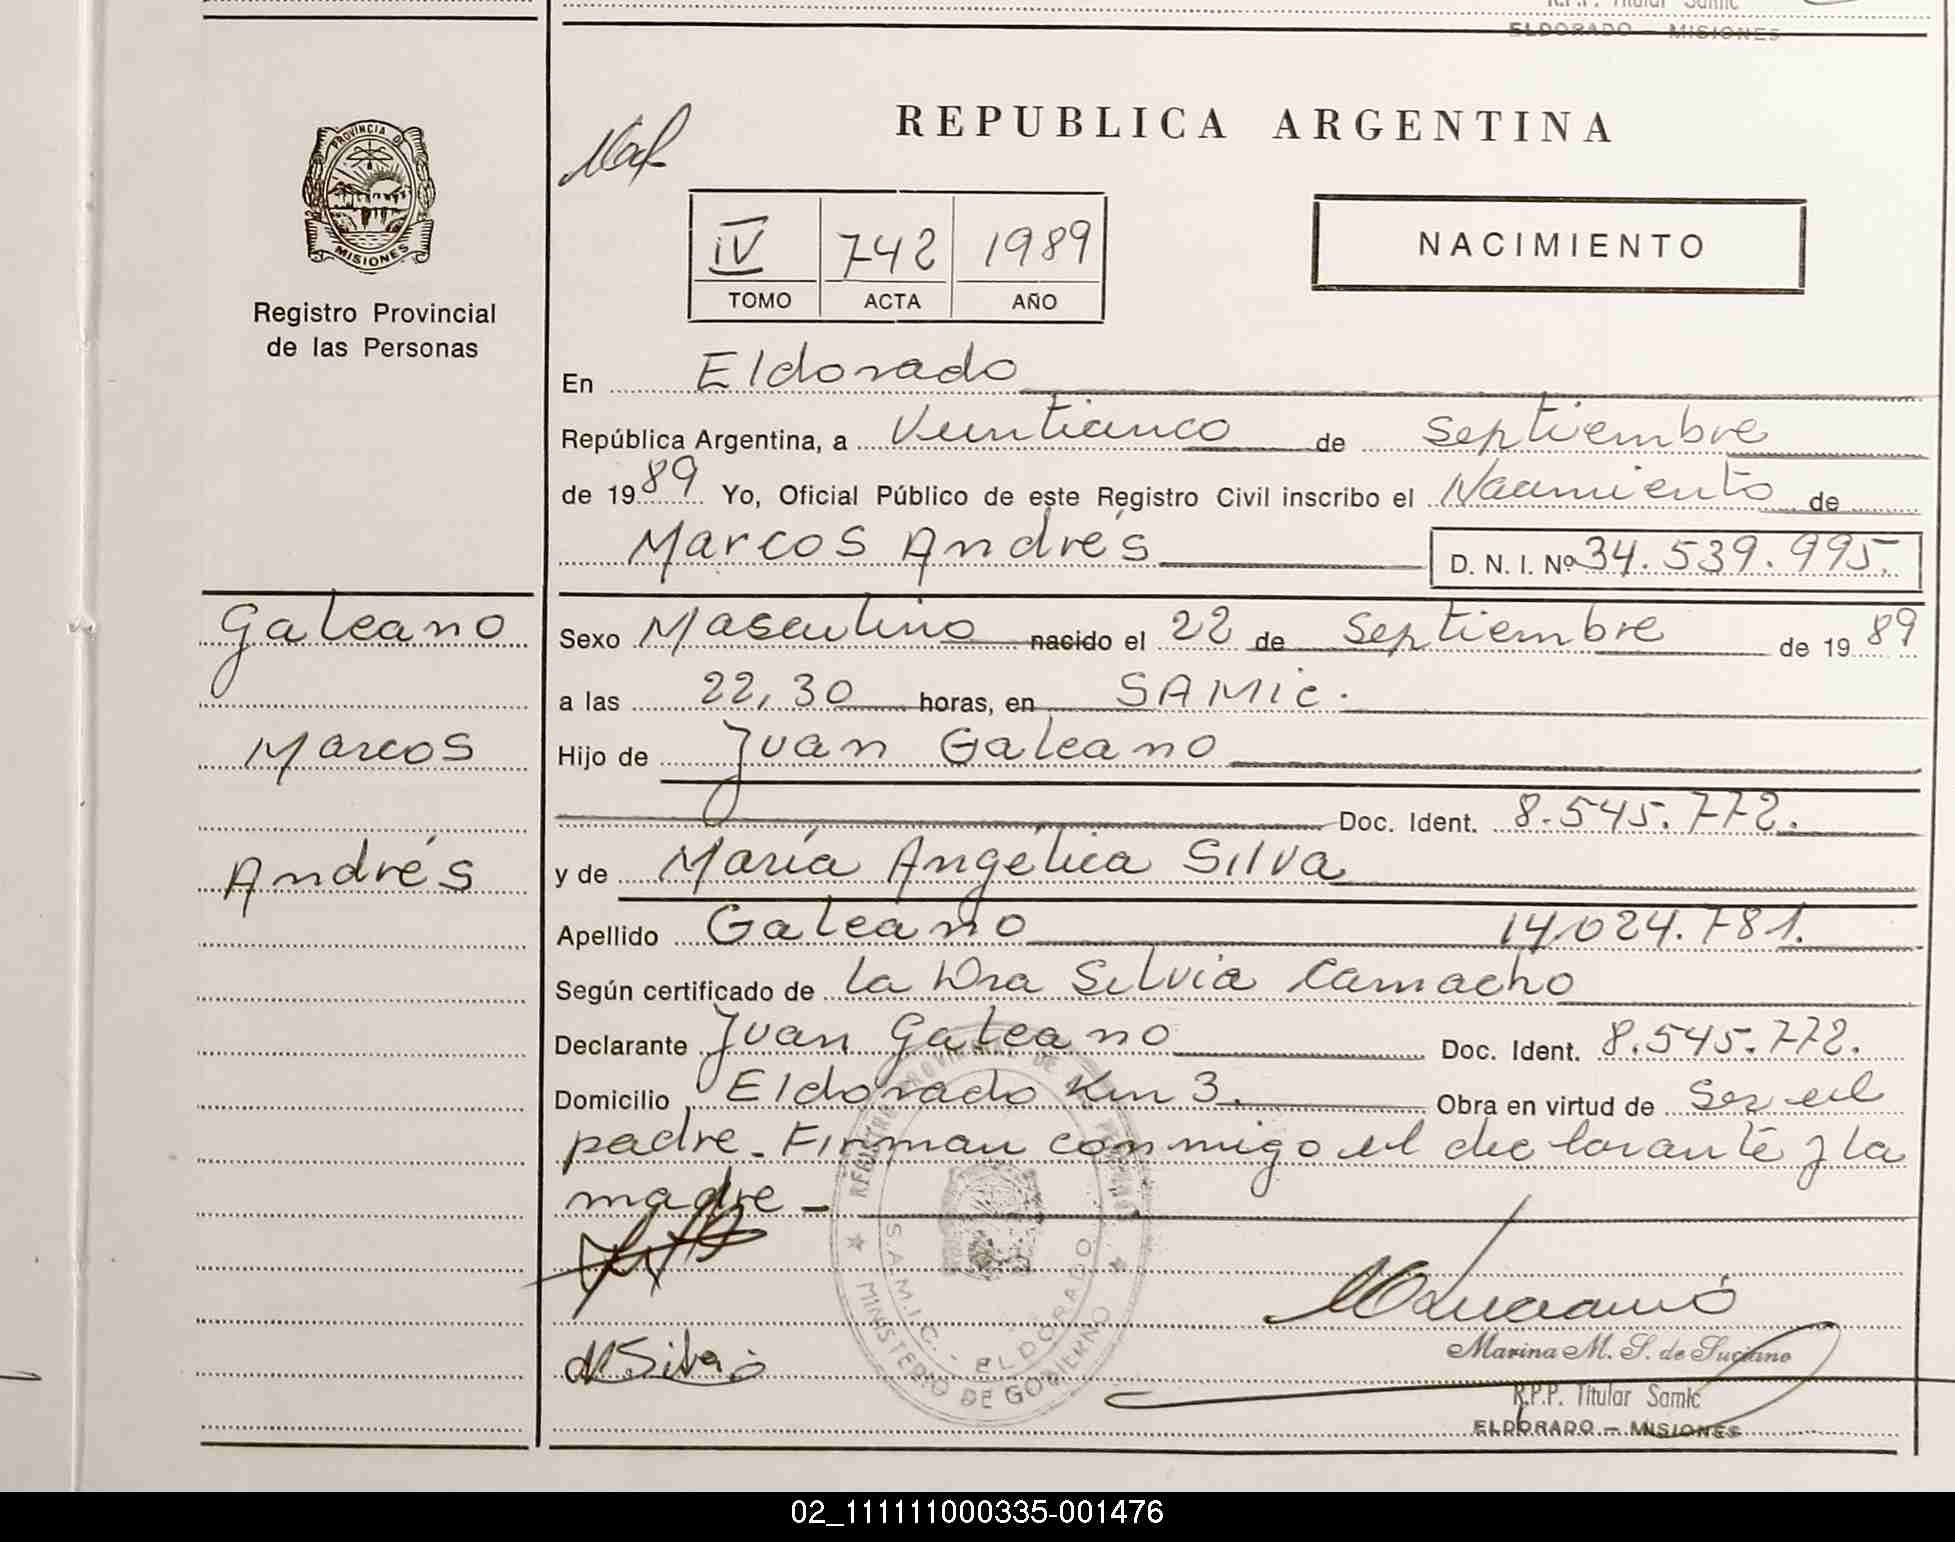 R.P.P. Titular Samic
ELDORADO — MISIONES
PROVINCIA DE
MISIONES
Registro Provincial
de las Personas
REPUBLICA ARGENTINA
IV 742 1989
TOMO ACTA AÑO
NACIMIENTO
En Eldorado
República Argentina, a Veinticinco de Septiembre
de 1989 Yo, Oficial Público de este Registro Civil inscribo el Nacimiento de
Marcos Andrés D. N. I. Nº 34.539.995.
Galeano
Marcos
Andrés
Sexo Masculino nacido el 22 de Septiembre de 1989
a las 22,30 horas, en SAMIC.
Hijo de Juan Galeano
Doc. Ident. 8.545.772.
y de María Angélica Silva
Apellido Galeano 14.024.781.
Según certificado de la Dra Silvia Camacho
Declarante Juan Galeano Doc. Ident. 8.545.772.
Domicilio Eldorado Km 3. Obra en virtud de Ser el
padre. Firman conmigo el declarante y la
madre —
S.A.M.I.C. - ELDORADO
MINISTERIO DE GOBIERNO
Marina M. S. de Luciano
R.P.P. Titular Samic
ELDORADO — MISIONES
02_111111000335-001476